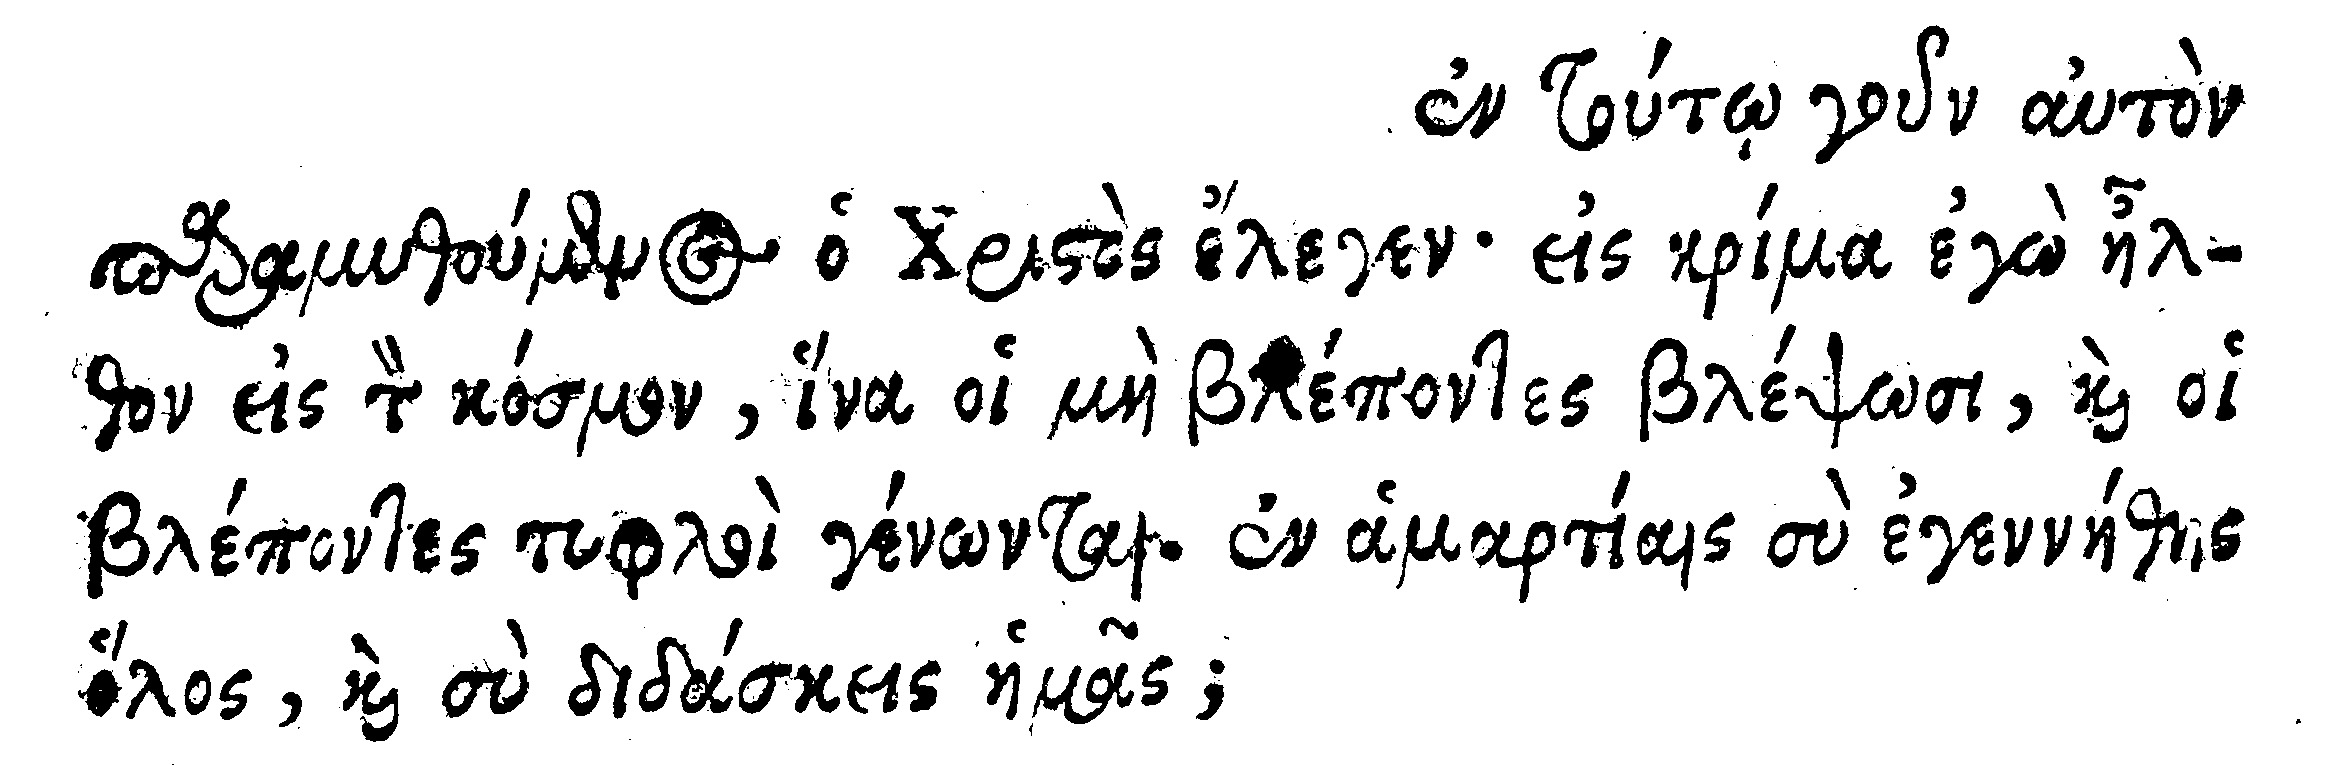 ἐν τούτῳ γοῦν αὐτὸν
παραμυθούμενος ὁ Χριστὸς ἔλεγεν· εἰς κρίμα ἐγὼ ἦλ-
θον εἰς τὸν κόσμον, ἵνα οἱ μὴ βλέποντες βλέψωσι, καὶ οἱ
βλέποντες τυφλοὶ γένωνται. ἐν ἁμαρτίαις σὺ ἐγεννήθης
ὅλος, καὶ σὺ διδάσκεις ἡμᾶς;